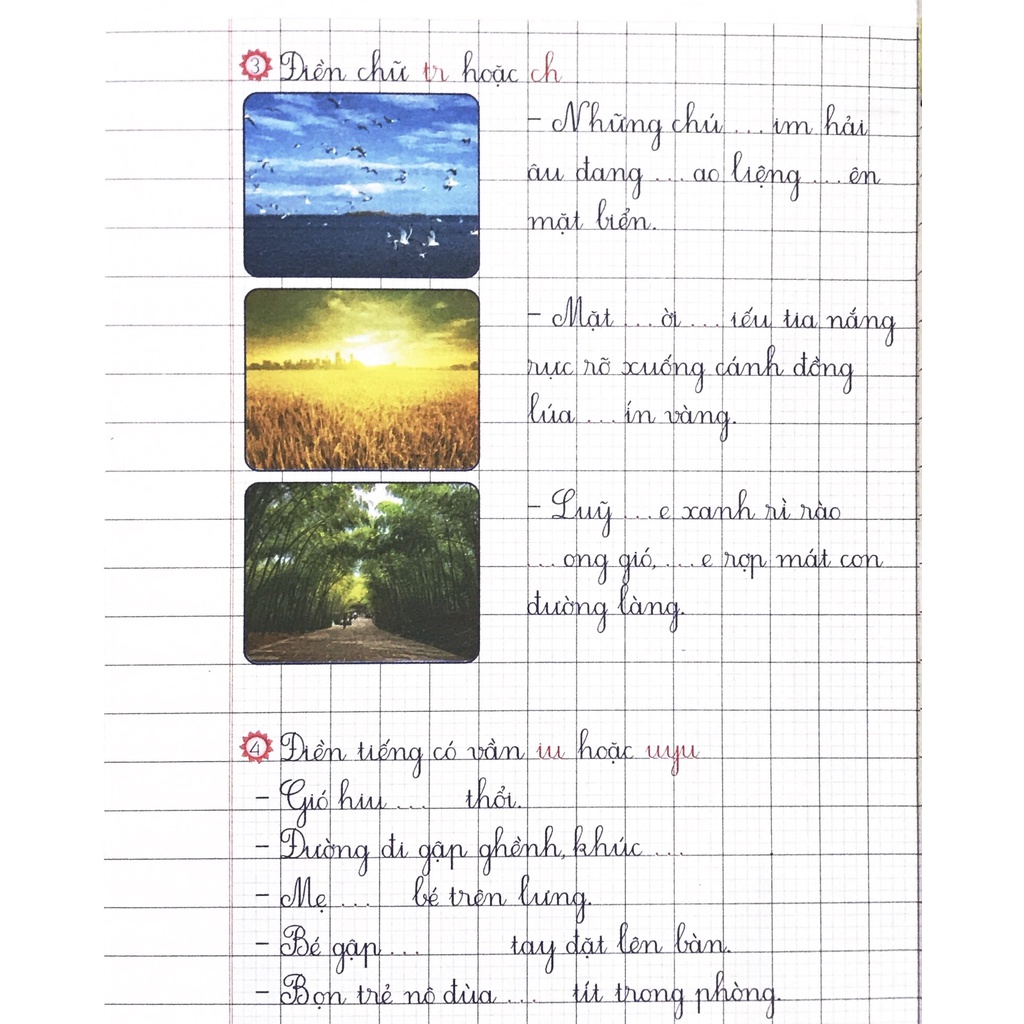 3 Điền chữ tr hoặc ch
- Những chú ... im hải
âu đang ... ao liệng ... ên
mặt biển.
- Mặt ... ời ... iếu tia nắng
rực rỡ xuống cánh đồng
lúa ... ín vàng.
- Luỹ ... e xanh rì rào
... ong gió, ... e rợp mát con
đường làng.
4 Điền tiếng có vần iu hoặc uyu
- Gió hiu ... thổi.
- Đường đi gập ghềnh, khúc ...
- Mẹ ... bé trên lưng.
- Bé gập ... tay đặt lên bàn.
- Bọn trẻ nô đùa ... tít trong phòng.